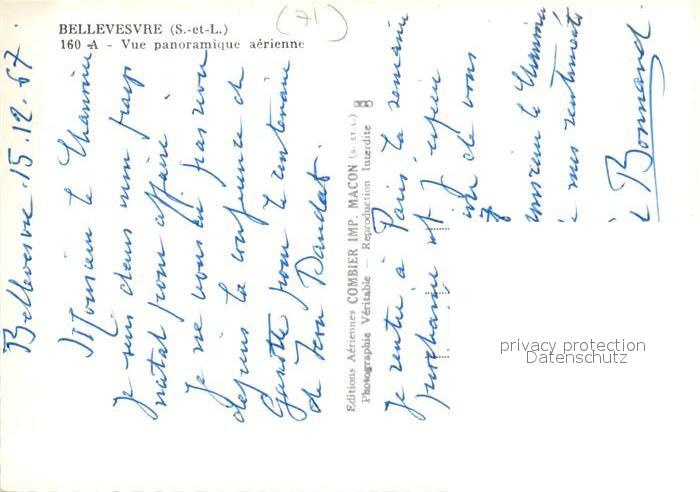 BELLEVESVRE (S.-et-L.)
160 A - Vue panoramique aérienne
(71)
Bellevesvre. 15.12.67
Monsieur le Chanoine
Je suis dans mon pays
natal pour affaire.
Je ne vous ai pas revu
depuis la conférence de
Gaxotte pour le centenaire
de
Editions Aériennes COMBIER IMP. MACON (S.-ET-L.)
Photographie Véritable - Reproduction Interdite
Je rentre à Paris la semaine
prochaine et j'espère
de vous
le Chanoine
mes sentiments
Bonnand
privacy protection
Datenschutz